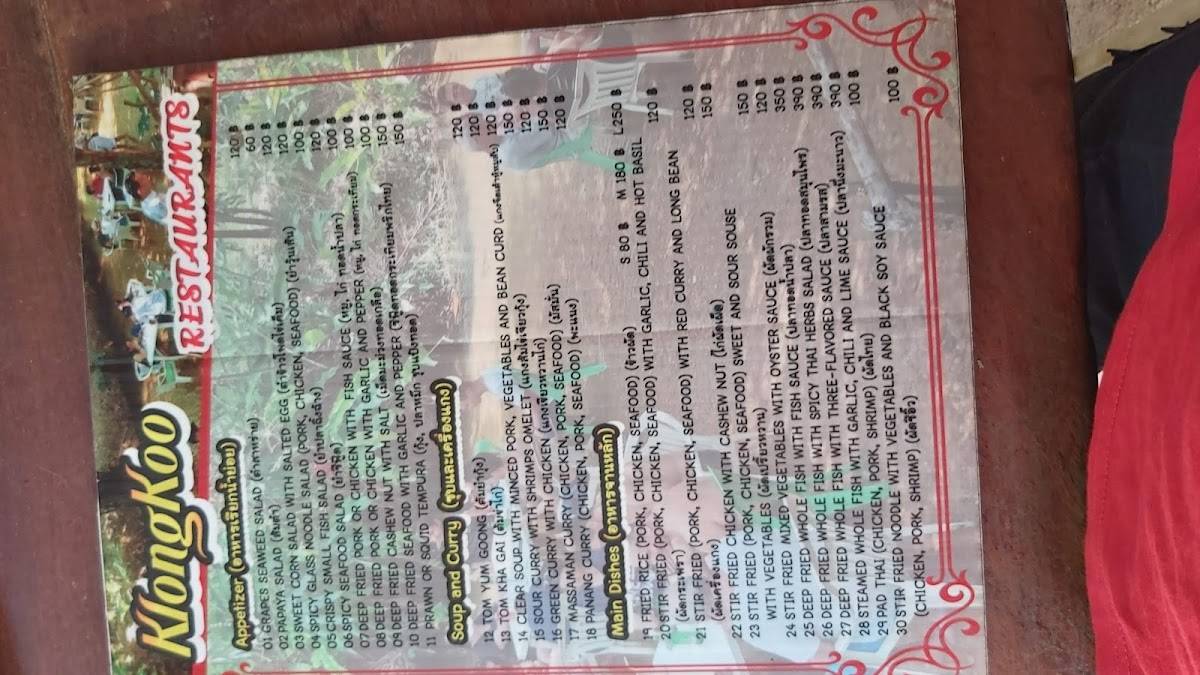 KlongKoo
RESTAURANTS
Appetizer (อาหารเรียกน้ำย่อย)
01 GRAPES SEAWEED SALAD (ตำสาหร่าย) 120 ฿
02 PAPAYA SALAD (ส้มตำ) 60 ฿
03 SWEET CORN SALAD WITH SALTED EGG (ตำข้าวโพดไข่เค็ม) 120 ฿
04 SPICY GLASS NOODLE SALAD (PORK, CHICKEN, SEAFOOD) (ยำวุ้นเส้น) 120 ฿
05 CRISPY SMALL FISH SALAD (ยำปลาฉิ้งฉ้าง) 100 ฿
06 SPICY SEAFOOD SALAD (ยำซีฟู๊ด) 120 ฿
07 DEEP FRIED PORK OR CHICKEN WITH FISH SAUCE (หมู, ไก่ ทอดน้ำปลา) 100 ฿
08 DEEP FRIED PORK OR CHICKEN WITH GARLIC AND PEPPER (หมู, ไก่ ทอดกระเทียม) 100 ฿
09 DEEP FRIED CASHEW NUT WITH SALT (เม็ดมะม่วงทอดเกลือ) 100 ฿
10 DEEP FRIED SEAFOOD WITH GARLIC AND PEPPER (ซีฟู๊ดทอดกระเทียมพริกไทย) 150 ฿
11 PRAWN OR SQUID TEMPURA (กุ้ง, ปลาหมึก ชุบแป้งทอด) 150 ฿
Soup and Curry (ซุปและเครื่องแกง)
12 TOM YUM GOONG (ต้มยำกุ้ง) 120 ฿
13 TOM KHA GAI (ต้มข่าไก่) 120 ฿
14 CLEAR SOUP WITH MINCED PORK, VEGETABLES AND BEAN CURD (แกงจืดเต้าหู้หมูสับ) 120 ฿
15 SOUR CURRY WITH SHRIMPS OMELET (แกงส้มไข่เจียวกุ้ง) 150 ฿
16 GREEN CURRY WITH CHICKEN (แกงเขียวหวานไก่) 120 ฿
17 MASSAMAN CURRY (CHICKEN, PORK, SEAFOOD) (มัสมั่น) 150 ฿
18 PANANG CURRY (CHICKEN, PORK, SEAFOOD) (พะแนง) 120 ฿
Main Dishes (อาหารจานหลัก)
19 FRIED RICE (PORK, CHICKEN, SEAFOOD) (ข้าวผัด) S 80 ฿ M 180 ฿ L 250 ฿
20 STIR FRIED (PORK, CHICKEN, SEAFOOD) WITH GARLIC, CHILI AND HOT BASIL 120 ฿
(ผัดกระเพรา)
21 STIR FRIED (PORK, CHICKEN, SEAFOOD) WITH RED CURRY AND LONG BEAN 120 ฿
(ผัดเครื่องแกง)
22 STIR FRIED CHICKEN WITH CASHEW NUT (ไก่ผัดเม็ด) 150 ฿
23 STIR FRIED (PORK, CHICKEN, SEAFOOD) SWEET AND SOUR SOUSE
WITH VEGETABLES (ผัดเปรี้ยวหวาน) 150 ฿
24 STIR FRIED MIXED VEGETABLES WITH OYSTER SAUCE (ผัดผักรวม) 120 ฿
25 DEEP FRIED WHOLE FISH WITH FISH SAUCE (ปลาทอดน้ำปลา) 350 ฿
26 DEEP FRIED WHOLE FISH WITH SPICY THAI HERBS SALAD (ปลาทอดสมุนไพร) 390 ฿
27 DEEP FRIED WHOLE FISH WITH THREE-FLAVORED SAUCE (ปลาสามรส) 390 ฿
28 STEAMED WHOLE FISH WITH GARLIC, CHILI AND LIME SAUCE (ปลานึ่งมะนาว) 390 ฿
29 PAD THAI (CHICKEN, PORK, SHRIMP) (ผัดไทย) 100 ฿
30 STIR FRIED NOODLE WITH VEGETABLES AND BLACK SOY SAUCE
(CHICKEN, PORK, SHRIMP) (ผัดซีอิ๊ว) 100 ฿